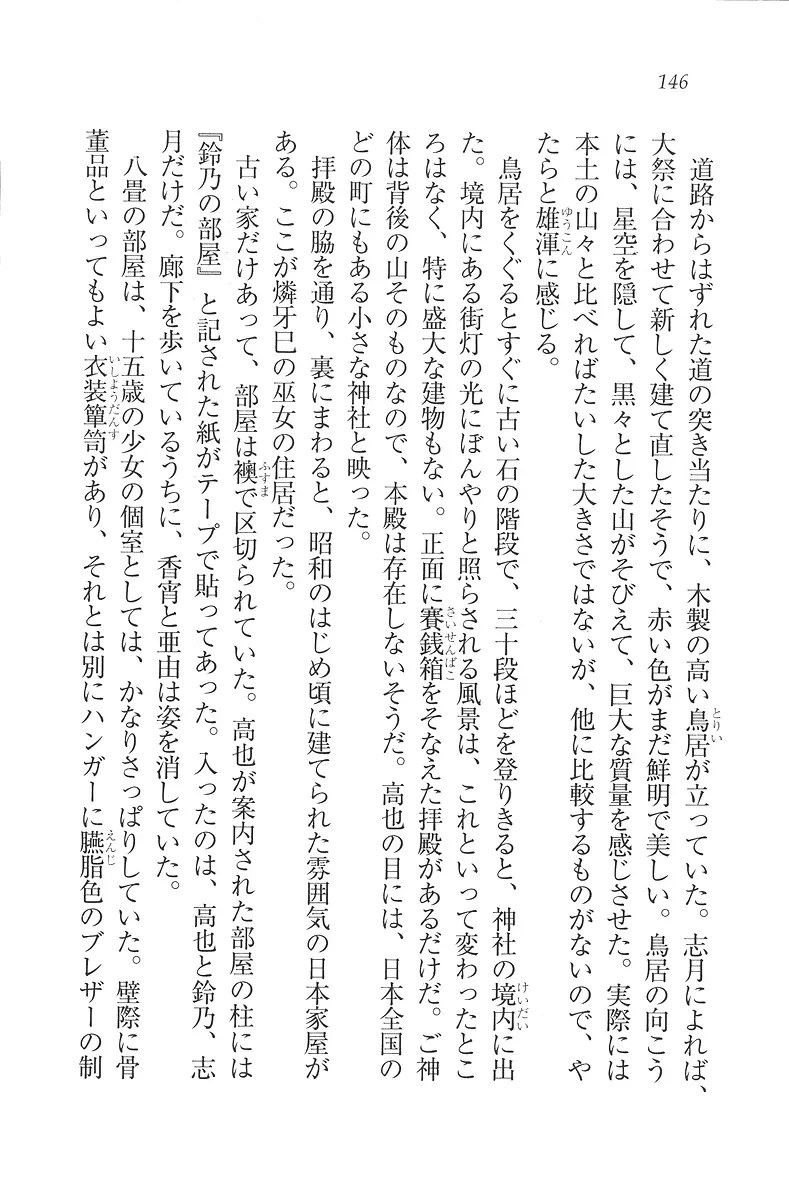 146
　道路からはずれた道の突き当たりに、木製の高い鳥居が立っていた。志月によれば、
大祭に合わせて新しく建て直したそうで、赤い色がまだ鮮明で美しい。鳥居の向こう
には、星空を隠して、黒々とした山がそびえて、巨大な質量を感じさせた。実際には
本土の山々と比べればたいした大きさではないが、他に比較するものがないので、や
たらと雄渾に感じる。
　鳥居をくぐるとすぐに古い石の階段で、三十段ほどを登りきると、神社の境内に出
た。境内にある街灯の光にぼんやりと照らされる風景は、これといって変わったとこ
ろはなく、特に盛大な建物もない。正面に賽銭箱をそなえた拝殿があるだけだ。ご神
体は背後の山そのものなので、本殿は存在しないそうだ。高也の目には、日本全国の
どの町にもある小さな神社と映った。
　拝殿の脇を通り、裏にまわると、昭和のはじめ頃に建てられた雰囲気の日本家屋が
ある。ここが燐牙巳の巫女の住居だった。
　古い家だけあって、部屋は襖で区切られていた。高也が案内された部屋の柱には
『鈴乃の部屋』と記された紙がテープで貼ってあった。入ったのは、高也と鈴乃、志
月だけだ。廊下を歩いているうちに、香宵と亜由は姿を消していた。
　八畳の部屋は、十五歳の少女の個室としては、かなりさっぱりしていた。壁際に骨
董品といってもよい衣装簞笥があり、それとは別にハンガーに臙脂色のブレザーの制